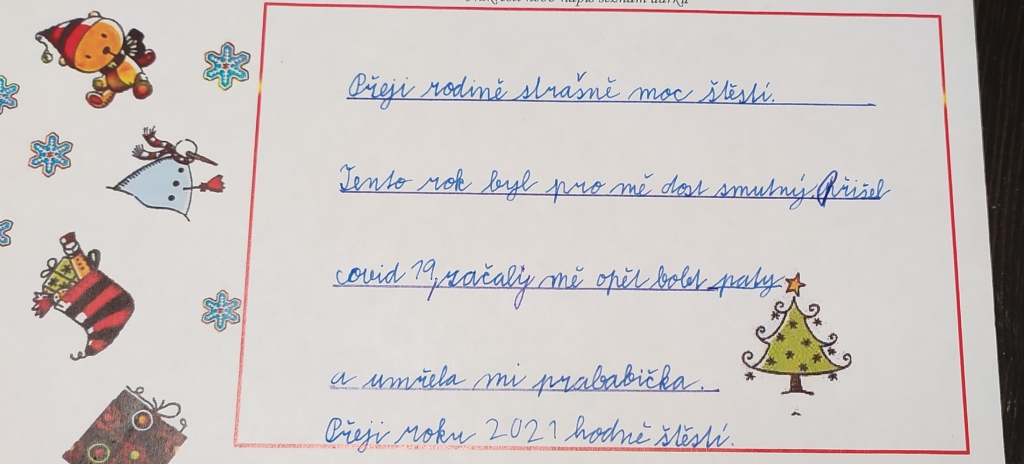 Nakresli nebo napiš seznam dárků
Přeji rodině strašně moc štěstí.
Tento rok byl pro mě dost smutný. Přišel
covid 19, začaly mě opět bolet paty
a umřela mi prababička.
Přeji roku 2021 hodně štěstí.